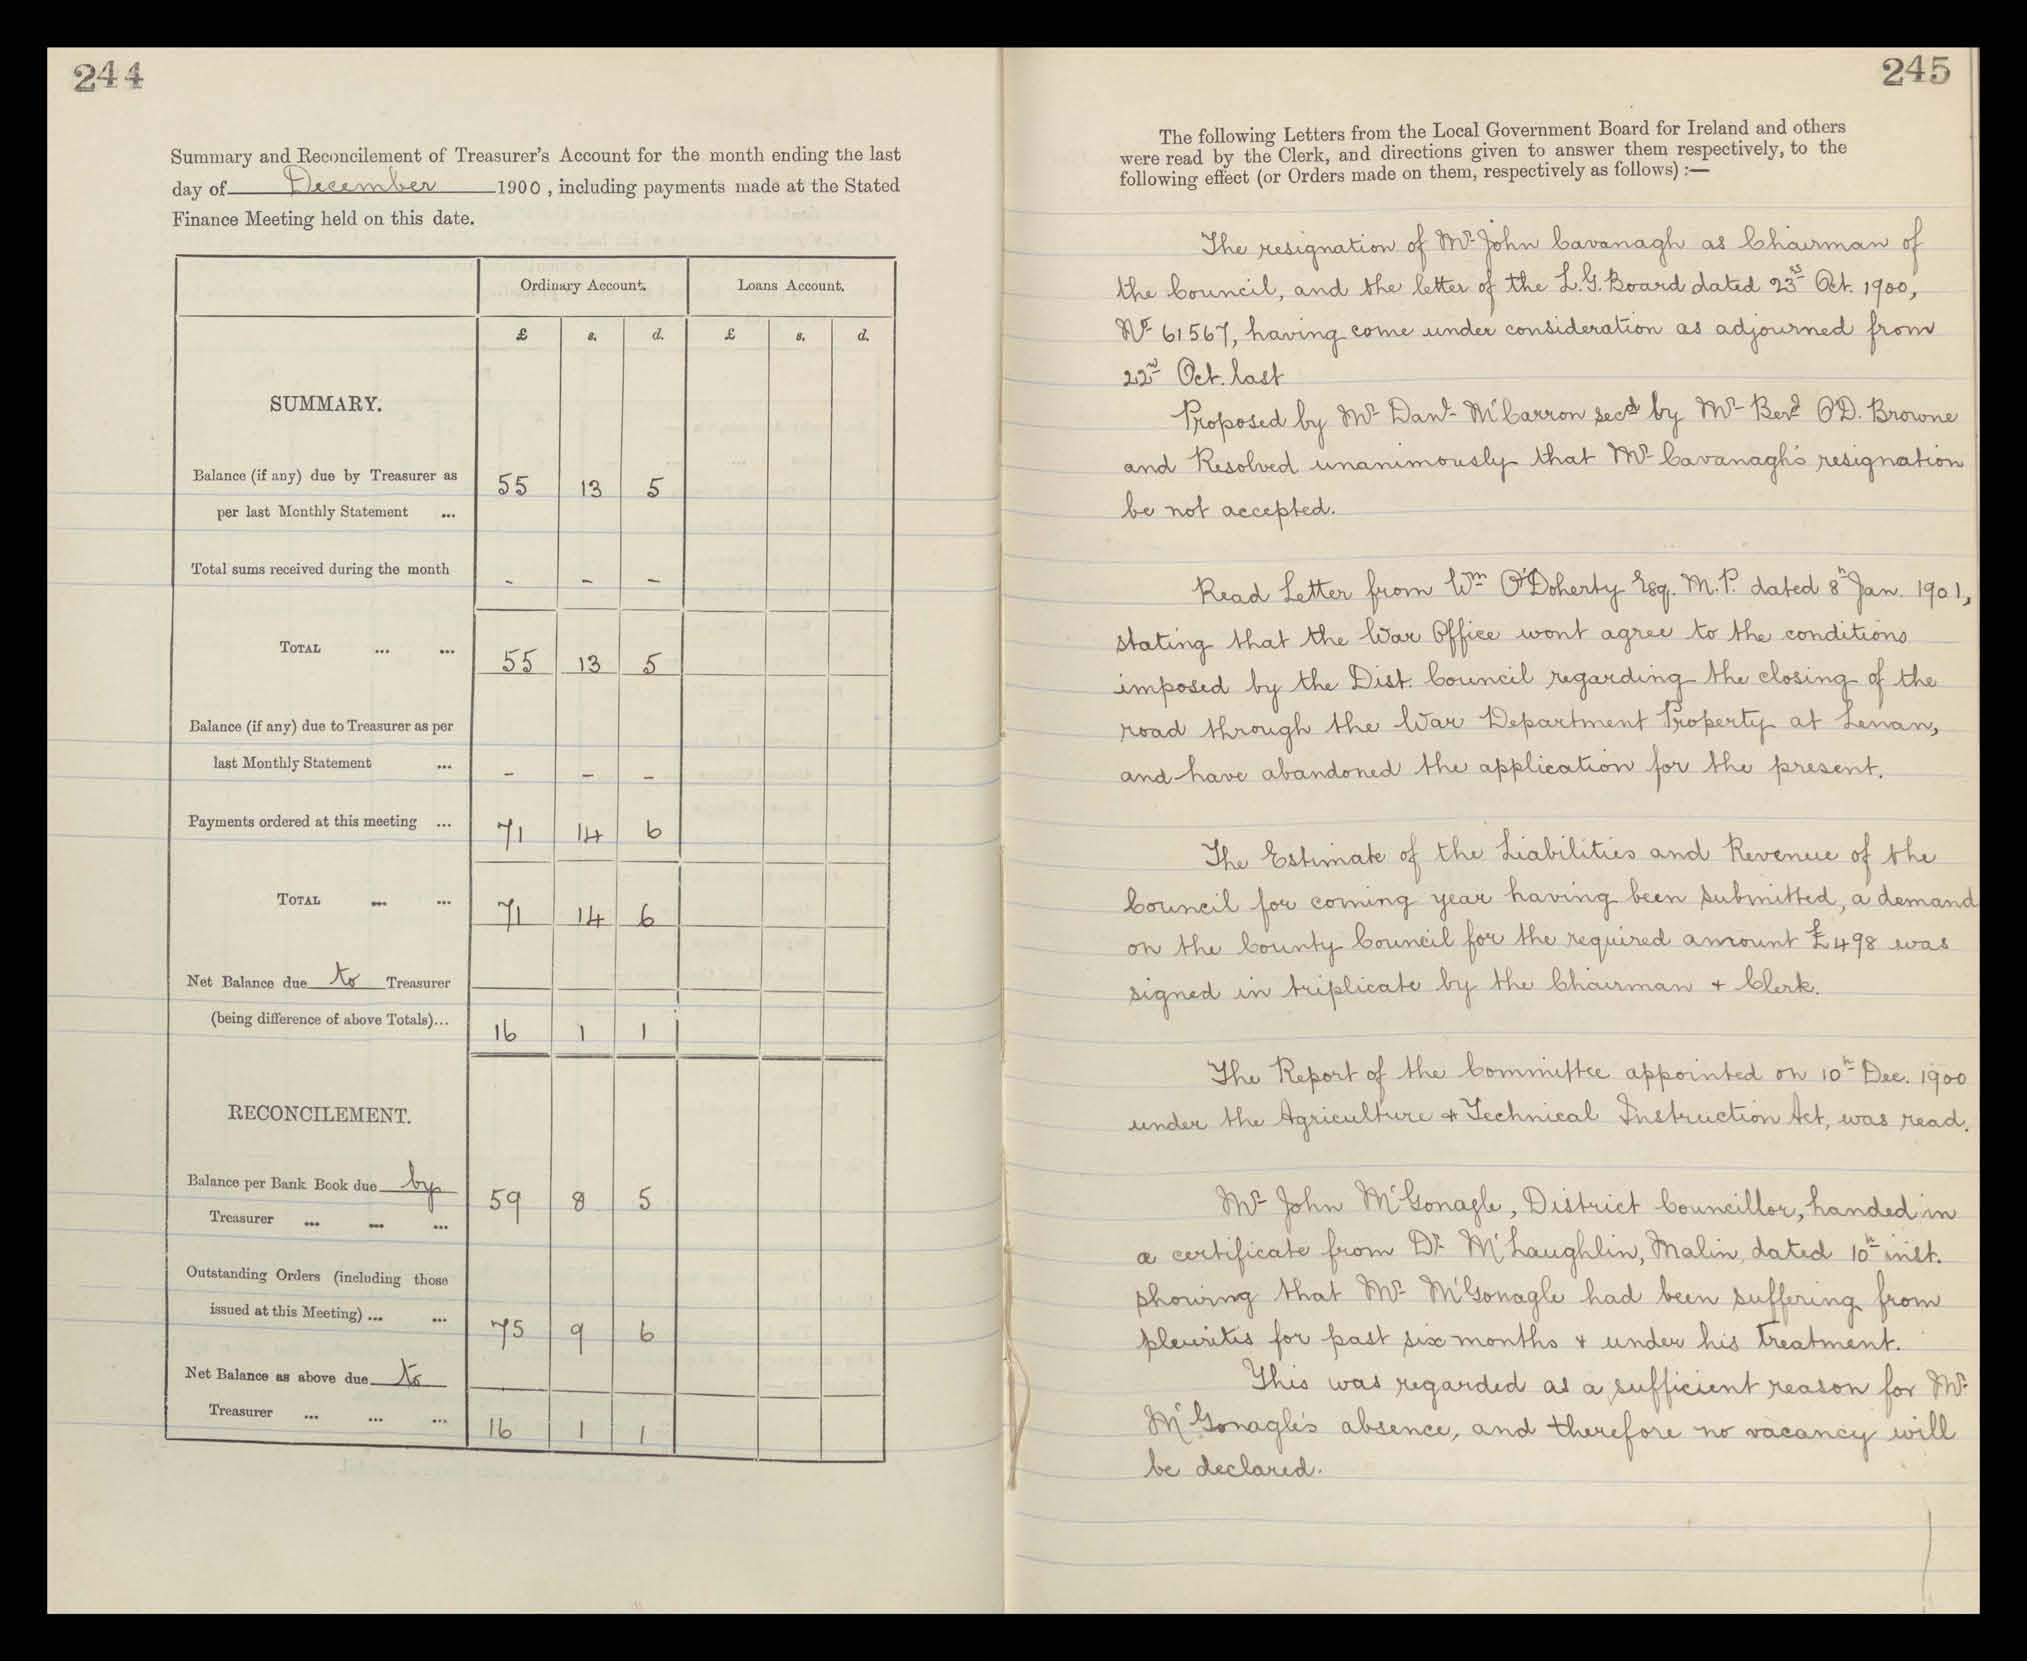 244
Summary and Reconcilement of Treasurer's Account for the month ending the last
day of December 1900, including payments made at the Stated
Finance Meeting held on this date.
Ordinary Account. Loans Account.
£ s. d. £ s. d.
SUMMARY.
Balance (if any) due by Treasurer as
per last Monthly Statement ... 55 13 5
Total sums received during the month - - -
TOTAL ... ... 55 13 5
Balance (if any) due to Treasurer as per
last Monthly Statement ... - - -
Payments ordered at this meeting ... 71 14 6
TOTAL ... ... 71 14 6
Net Balance due to Treasurer
(being difference of above Totals)... 16 1 1
RECONCILEMENT.
Balance per Bank Book due by
Treasurer ... ... ... 59 8 5
Outstanding Orders (including those
issued at this Meeting) ... ... 75 9 6
Net Balance as above due to
Treasurer ... ... ... 16 1 1
245
The following Letters from the Local Government Board for Ireland and others
were read by the Clerk, and directions given to answer them respectively, to the
following effect (or Orders made on them, respectively as follows) :—
The resignation of Mr John Cavanagh as Chairman of
the Council, and the letter of the L.G. Board dated 23rd Oct. 1900,
No 61567, having come under consideration as adjourned from
22nd Oct. last
Proposed by Mr Danl McCarron secd by Mr Bend O'D. Browne
and Resolved unanimously that Mr Cavanagh's resignation
be not accepted.
Read Letter from Wm O'Doherty Esq. M.P. dated 8th Jan. 1901,
stating that the War Office wont agree to the conditions
imposed by the Dist. Council regarding the closing of the
road through the War Department Property at Lenan,
and have abandoned the application for the present.
The Estimate of the Liabilities and Revenue of the
Council for coming year having been submitted, a demand
on the County Council for the required amount £498 was
signed in triplicate by the Chairman + Clerk.
The Report of the Committee appointed on 10th Dec. 1900
under the Agriculture + Technical Instruction Act, was read.
Mr John McGonagle, District Councillor, handed in
a certificate from Dr McLaughlin, Malin, dated 10th inst.
showing that Mr McGonagle had been suffering from
pleuritis for past six months + under his treatment.
This was regarded as a sufficient reason for Mr
McGonagle's absence, and therefore no vacancy will
be declared.